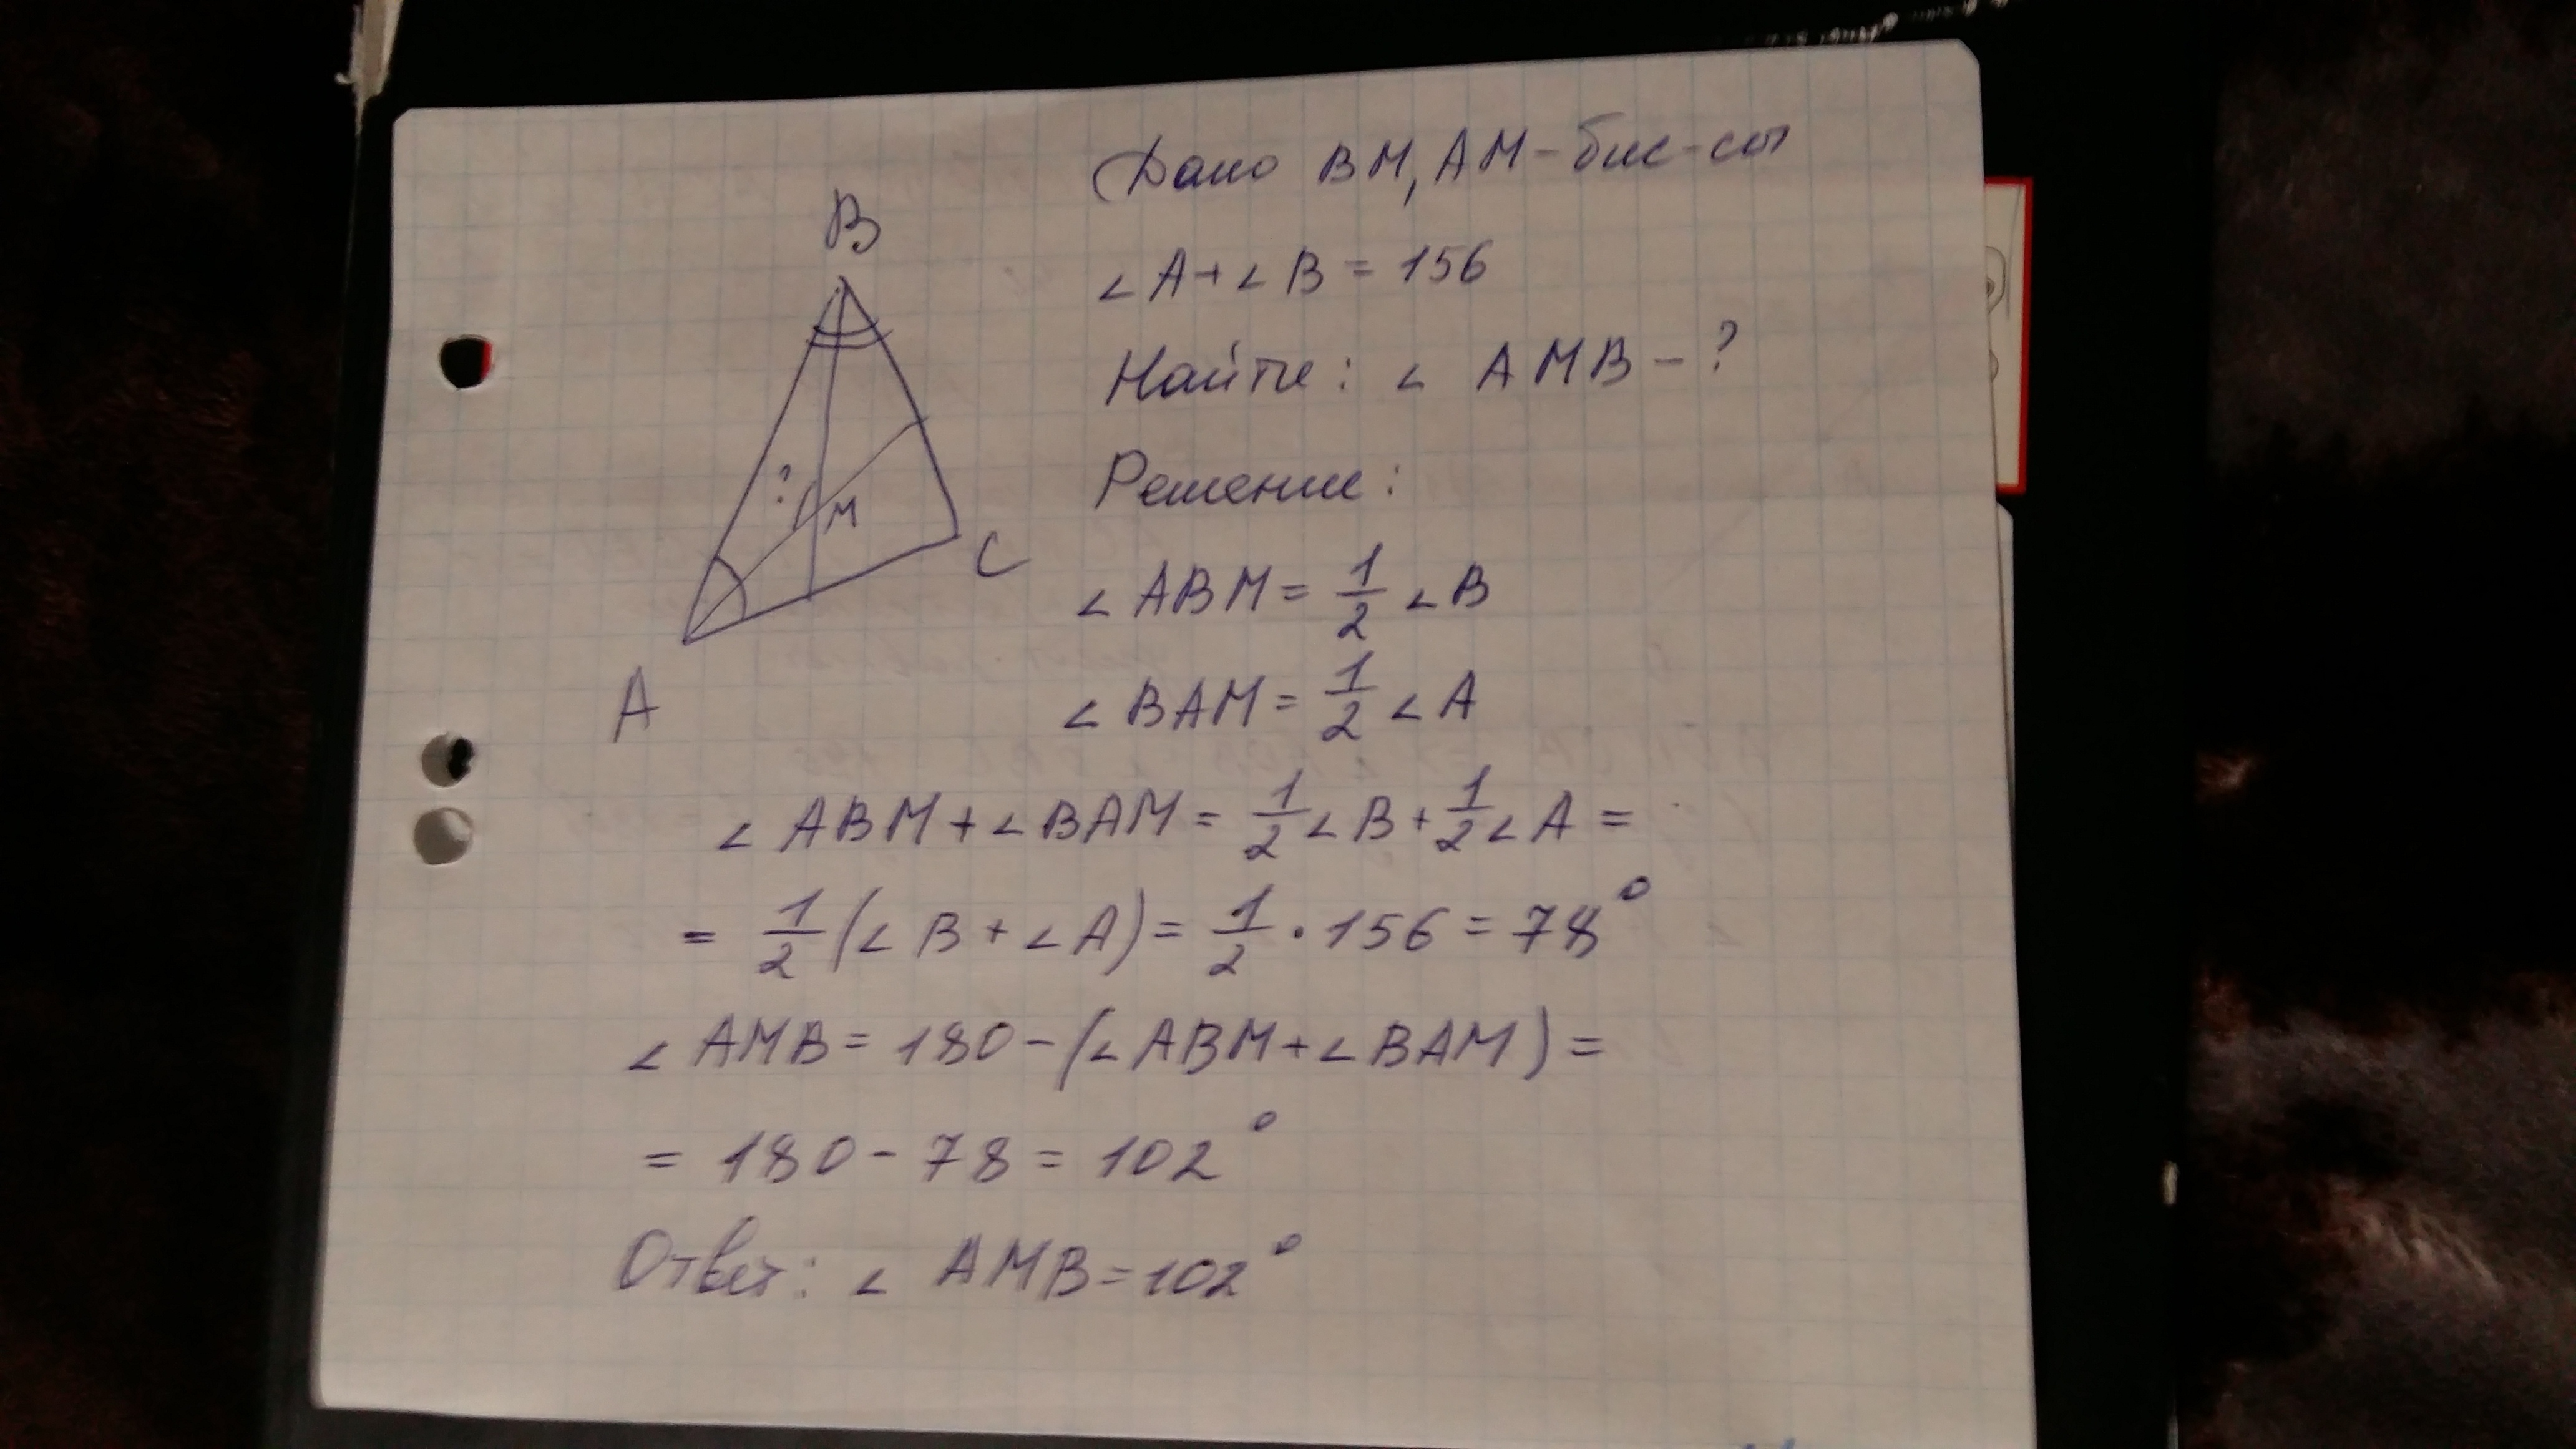 B
A
C
M
?
Дано BM, AM - бис-сы
∠A+∠B = 156
Найти: ∠ AMB - ?
Решение:
∠ABM = 1/2 ∠B
∠BAM = 1/2 ∠A
∠ABM + ∠BAM = 1/2 ∠B + 1/2 ∠A =
= 1/2 (∠B + ∠A) = 1/2 · 156 = 78°
∠AMB = 180 - (∠ABM + ∠BAM) =
= 180 - 78 = 102°
Ответ: ∠ AMB = 102°